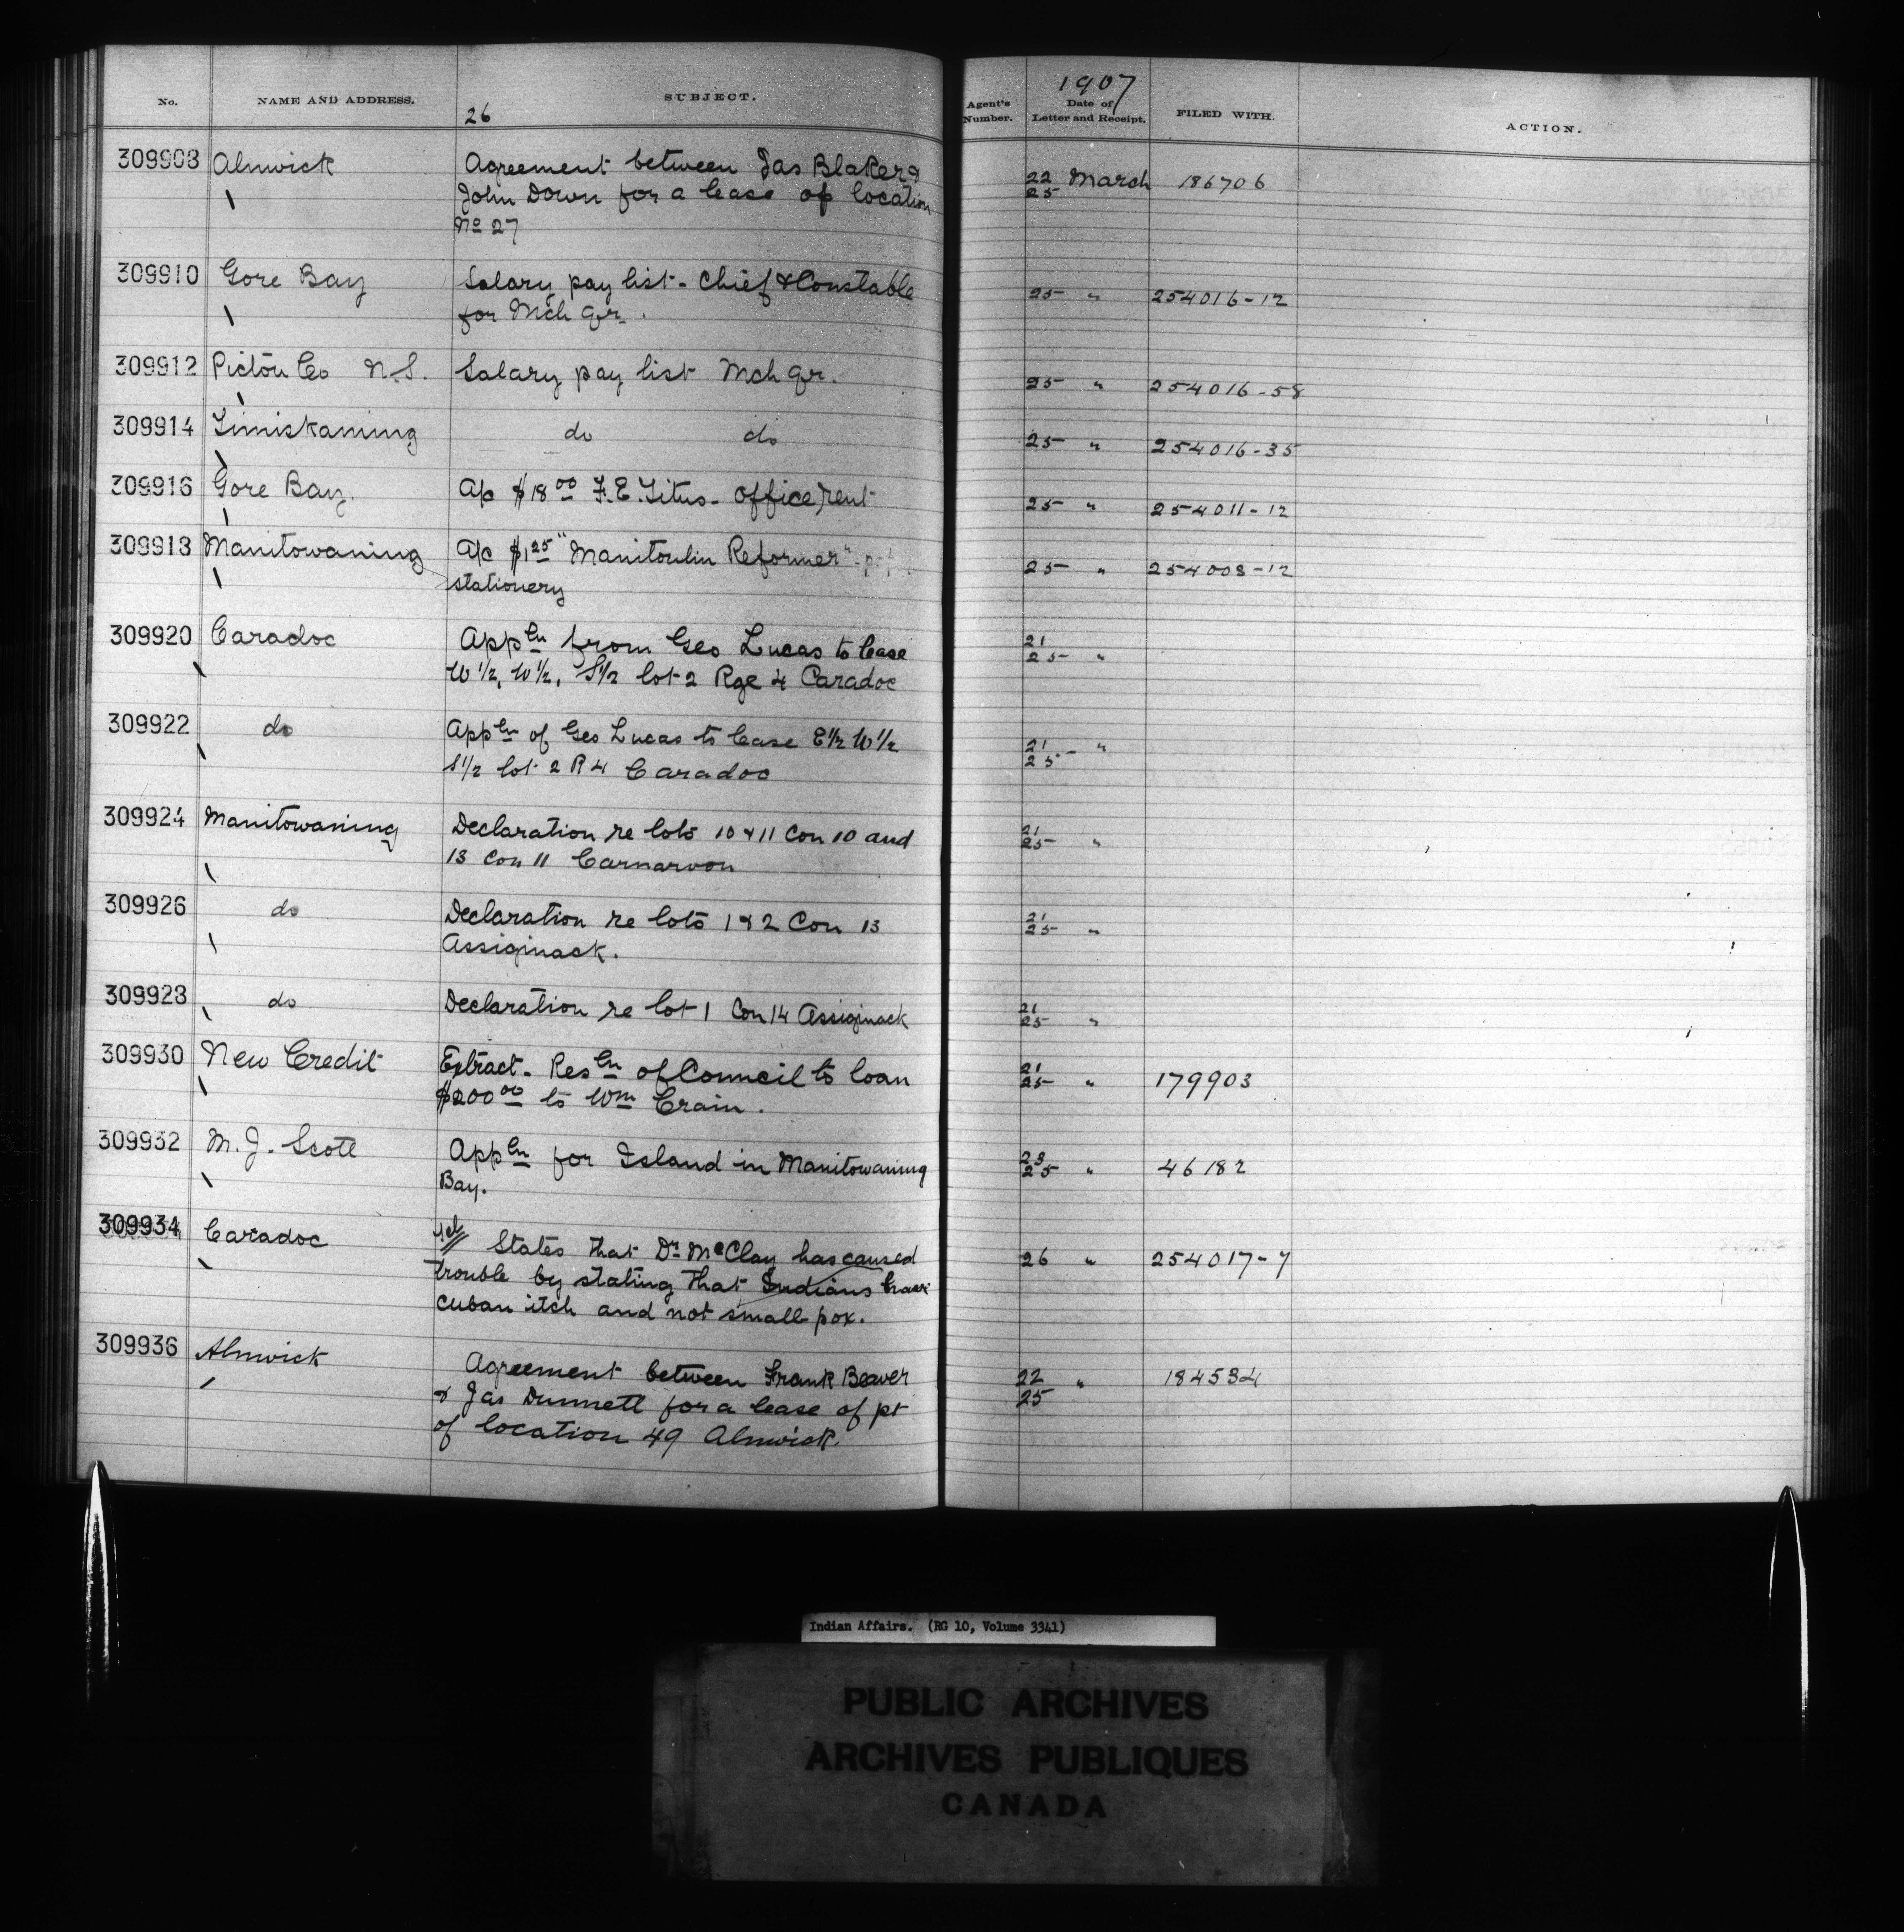 No. NAME AND ADDRESS. SUBJECT. Agent's Number. 1907 Date of Letter and Receipt. FILED WITH. ACTION.
26
309908 Alnwick Agreement between Jas Blaker & 22 March 186706
John Down for a lease of location 25
No 27
309910 Gore Bay Salary pay list - Chief & Constable 25 " 254016-12
for Mch qr.
309912 Pictou Co N.S. Salary pay list Mch qr. 25 " 254016-58
309914 Timiskaming do do 25 " 254016-35
309916 Gore Bay. A/c $18 00 F.E. Titus - office rent 25 " 254011-12
309918 Manitowaning A/c $1 25 "Manitoulin Reformer" - 25 " 254008-12
stationery
309920 Caradoc Appln from Geo Lucas to lease 21
W 1/2, W 1/2, S 1/2 lot 2 Rge 4 Caradoc 25 "
309922 do Appln of Geo Lucas to lease E 1/2 W 1/2 21 "
S 1/2 lot 2 R 4 Caradoc 25
309924 Manitowaning Declaration re lots 10 & 11 Con 10 and 21
13 Con 11 Carnarvon 25 "
309926 do Declaration re lots 1 & 2 Con 13 21
Assiginack. 25 "
309928 do Declaration re lot 1 Con 14 Assiginack 21
25 "
309930 New Credit Extract - Resln of Council to loan 21
$200 00 to Wm Crain. 25 " 179903
309932 M. J. Scott Appln for Island in Manitowaning 23
Bay. 25 " 46182
309934 Caradoc Tel States that Dr McClay has caused 26 " 254017-7
trouble by stating that Indians have
cuban itch and not small pox.
309936 Alnwick Agreement between Frank Beaver 22 " 184534
& Jas Dunnett for a lease of pt 25
of location 49 Alnwick.
Indian Affairs. (RG 10, Volume 3341)
PUBLIC ARCHIVES
ARCHIVES PUBLIQUES
CANADA